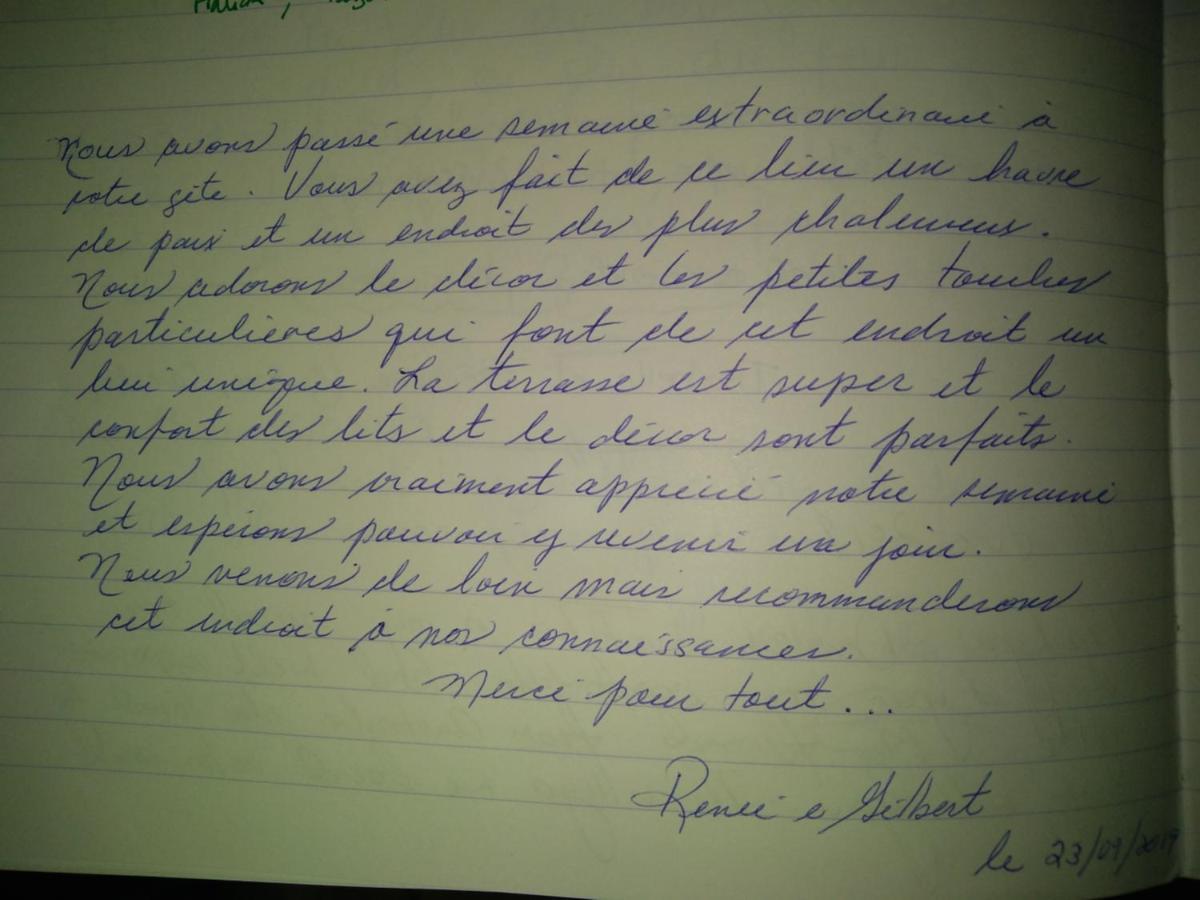 Nous avons passé une semaine extraordinaire à
votre gîte. Vous avez fait de ce lieu un havre
de paix et un endroit des plus chaleureux.
Nous adorons le décor et les petites touches
particulières qui font de cet endroit un
lieu unique. La terrasse est super et le
confort des lits et le décor sont parfaits.
Nous avons vraiment apprécié notre semaine
et espérons pouvoir y revenir un jour.
Nous venons de loin mais recommanderons
cet endroit à nos connaissances.
Merci pour tout...
Renée e Gilbert
le 23/09/2019